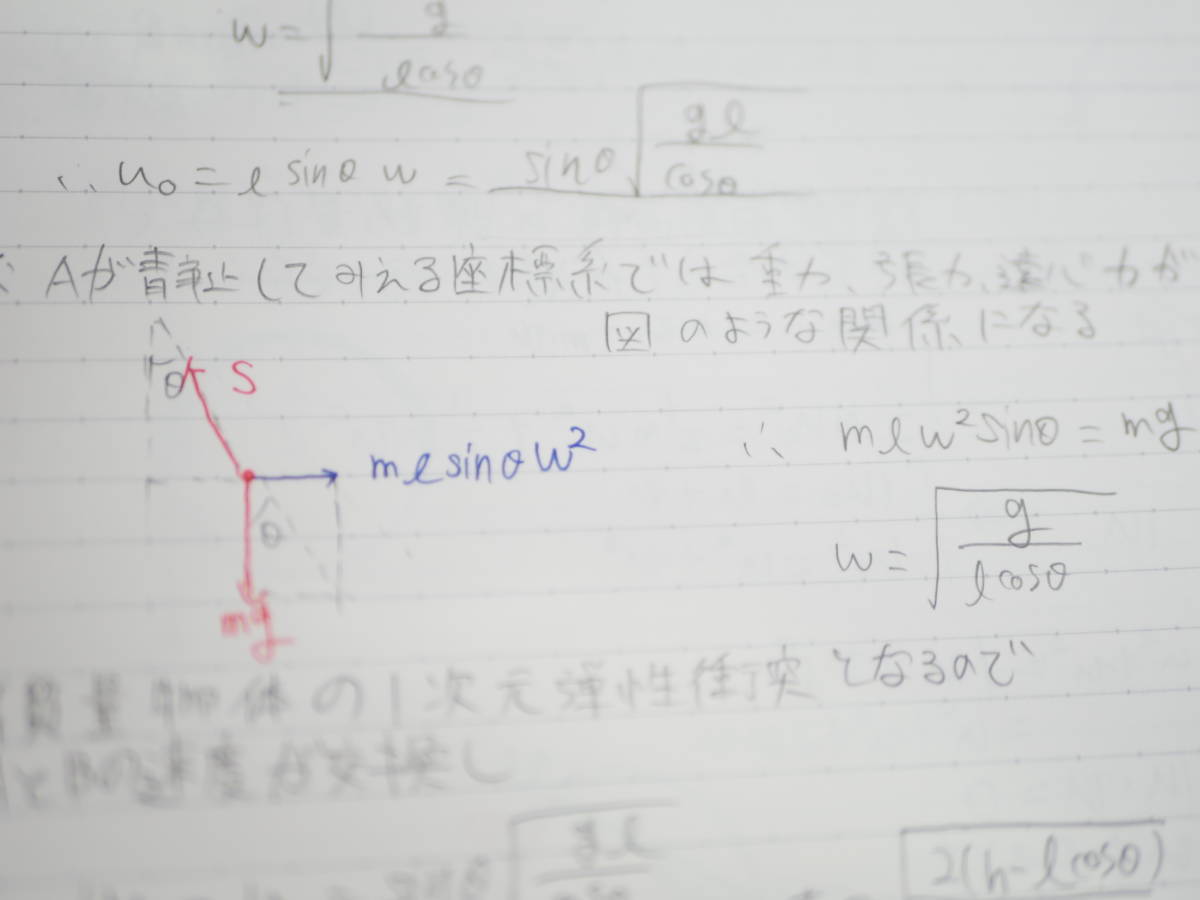 w = √(g / lcosθ)
∴ u₀ = l sinθ w = sinθ √(gl / cosθ)
Aが静止してみえる座標系では 重力、張力、遠心力が
図のような関係になる
θ S
mlsinθw²
∴ mlw²sinθ = mg
θ
w = √(g / lcosθ)
mg
質量物体の1次元弾性衝突となるので
の速度が交換し
√(gl
2(h-lcosθ)